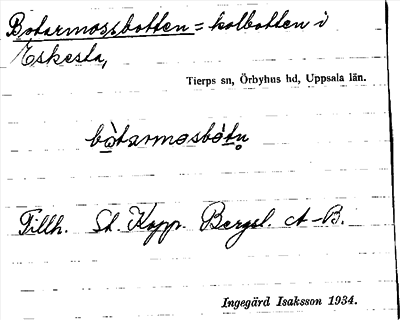 Botarmossbotten = kolbotten i
Eskesta,
Tierps sn, Örbyhus hd, Uppsala län.
bòtarmosbótn̥
Tillh. St. Kopp. Bergsl. A-B.
Ingegärd Isaksson 1934.